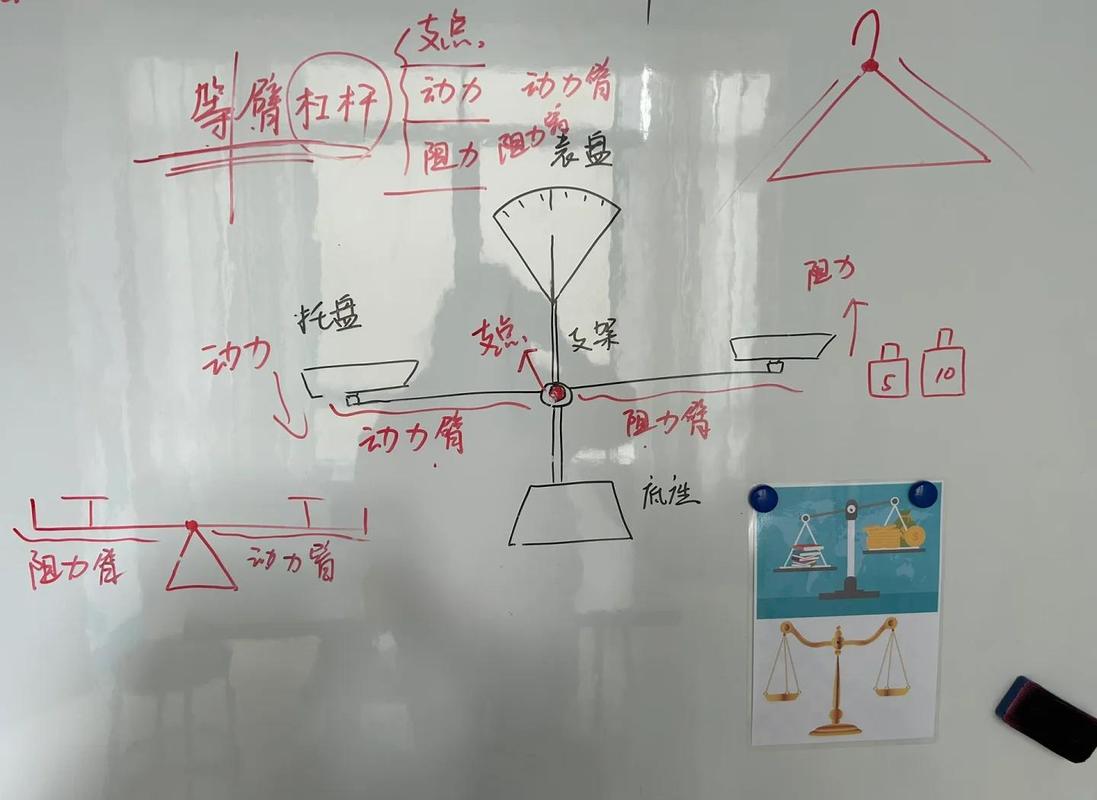 等臂杠杆
支点
动力 动力臂
阻力 阻力臂
表盘
阻力
托盘
支点
支架
动力
5
10
动力臂
阻力臂
底座
阻力臂
动力臂